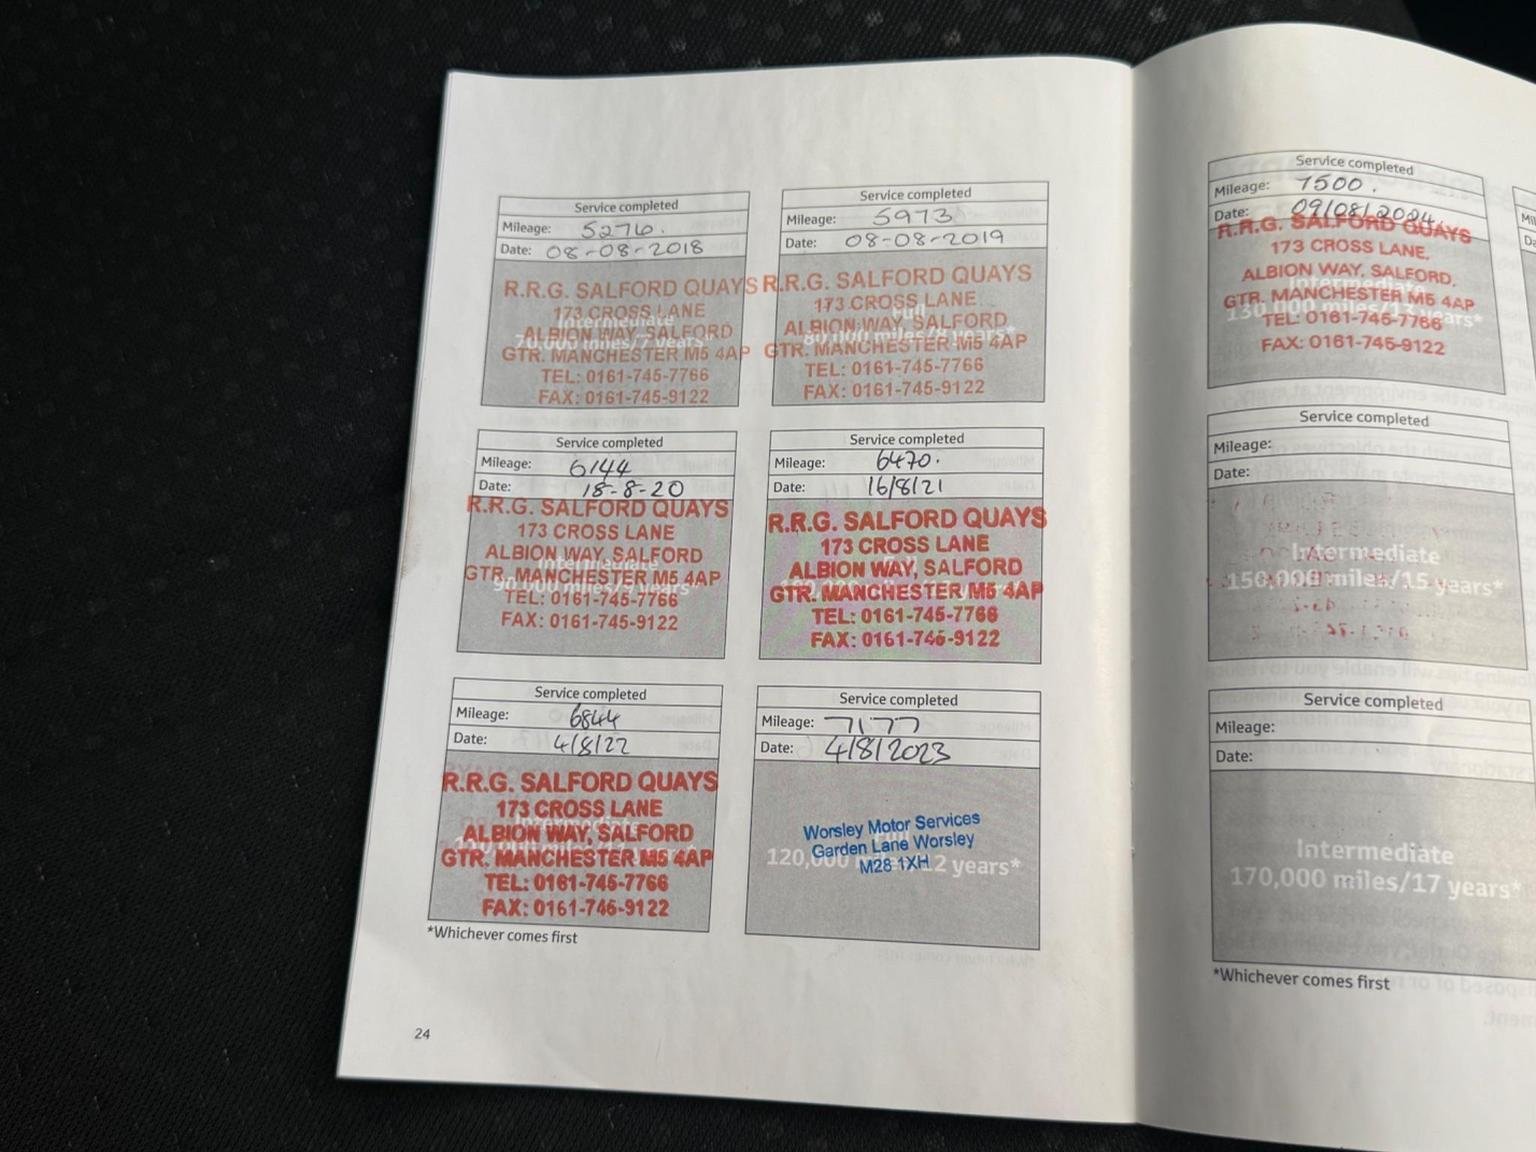 Service completed
Mileage: 5276.
Date: 08-08-2018
R.R.G. SALFORD QUAYS
173 CROSS LANE
Intermediate
ALBION WAY, SALFORD
70,000 miles/7 years*
GTR. MANCHESTER M5 4AP
TEL: 0161-745-7766
FAX: 0161-745-9122
Service completed
Mileage: 5973
Date: 08-08-2019
R.R.G. SALFORD QUAYS
173 CROSS LANE
Full
ALBION WAY, SALFORD
80,000 miles/8 years*
GTR. MANCHESTER M5 4AP
TEL: 0161-745-7766
FAX: 0161-745-9122
Service completed
Mileage: 6144
Date: 18-8-20
R.R.G. SALFORD QUAYS
173 CROSS LANE
ALBION WAY, SALFORD
Intermediate
GTR. MANCHESTER M5 4AP
90,000 miles/9 years*
TEL: 0161-745-7766
FAX: 0161-745-9122
Service completed
Mileage: 6470.
Date: 16/8/21
R.R.G. SALFORD QUAYS
173 CROSS LANE
ALBION WAY, SALFORD
GTR. MANCHESTER M5 4AP
TEL: 0161-745-7766
FAX: 0161-745-9122
Service completed
Mileage: 6844
Date: 4/8/22
R.R.G. SALFORD QUAYS
173 CROSS LANE
Intermediate
ALBION WAY, SALFORD
GTR. MANCHESTER M5 4AP
TEL: 0161-745-7766
FAX: 0161-745-9122
Service completed
Mileage: 7177
Date: 4/8/2023
Worsley Motor Services
Garden Lane Worsley
M28 1XH
Full
120,000 miles/12 years*
*Whichever comes first
24
Service completed
Mileage: 7500.
Date: 09/08/2024
R.R.G. SALFORD QUAYS
173 CROSS LANE,
ALBION WAY, SALFORD.
Intermediate
GTR. MANCHESTER M5 4AP
130,000 miles/13 years*
TEL: 0161-745-7766
FAX: 0161-745-9122
Service completed
Mileage:
Date:
Intermediate
150,000 miles/15 years*
Service completed
Mileage:
Date:
Intermediate
170,000 miles/17 years*
*Whichever comes first